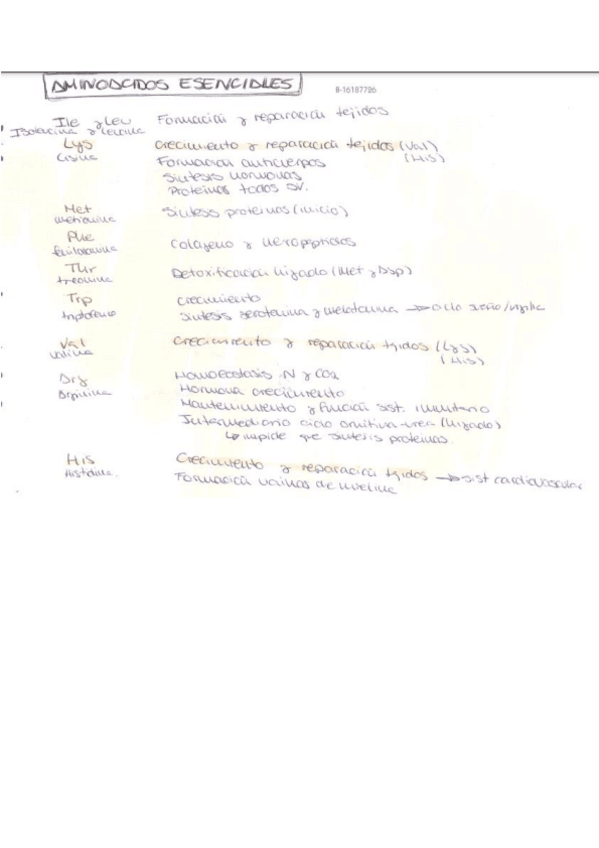 AMINOÁCIDOS ESENCIALES
B-16187796
Ile y Leu Formación y reparación tejidos
Isoleucina y leucina
Lys Crecimiento y reparación tejidos (Val)
Lisina Formación anticuerpos (His)
Síntesis hormonas
Proteínas todos SV.
Met Síntesis proteínas (inicio)
metionina
Phe Colágeno y neuropéptidos
fenilalanina
Thr Detoxificación hígado (Met y Asp)
treonina
Trp Crecimiento
triptófano Síntesis serotonina y melatonina → ciclo sueño/vigilia
Val Crecimiento y reparación tejidos (Lys)
valina (His)
Arg Homeostasis N y CO2
Arginina Hormona crecimiento
Mantenimiento y función sist. inmunitario
Intermediario ciclo ornitina-urea (hígado)
↳ impide que síntesis proteínas.
His Crecimiento y reparación tejidos → sist cardiovascular
Histidina. Formación vainas de mielina